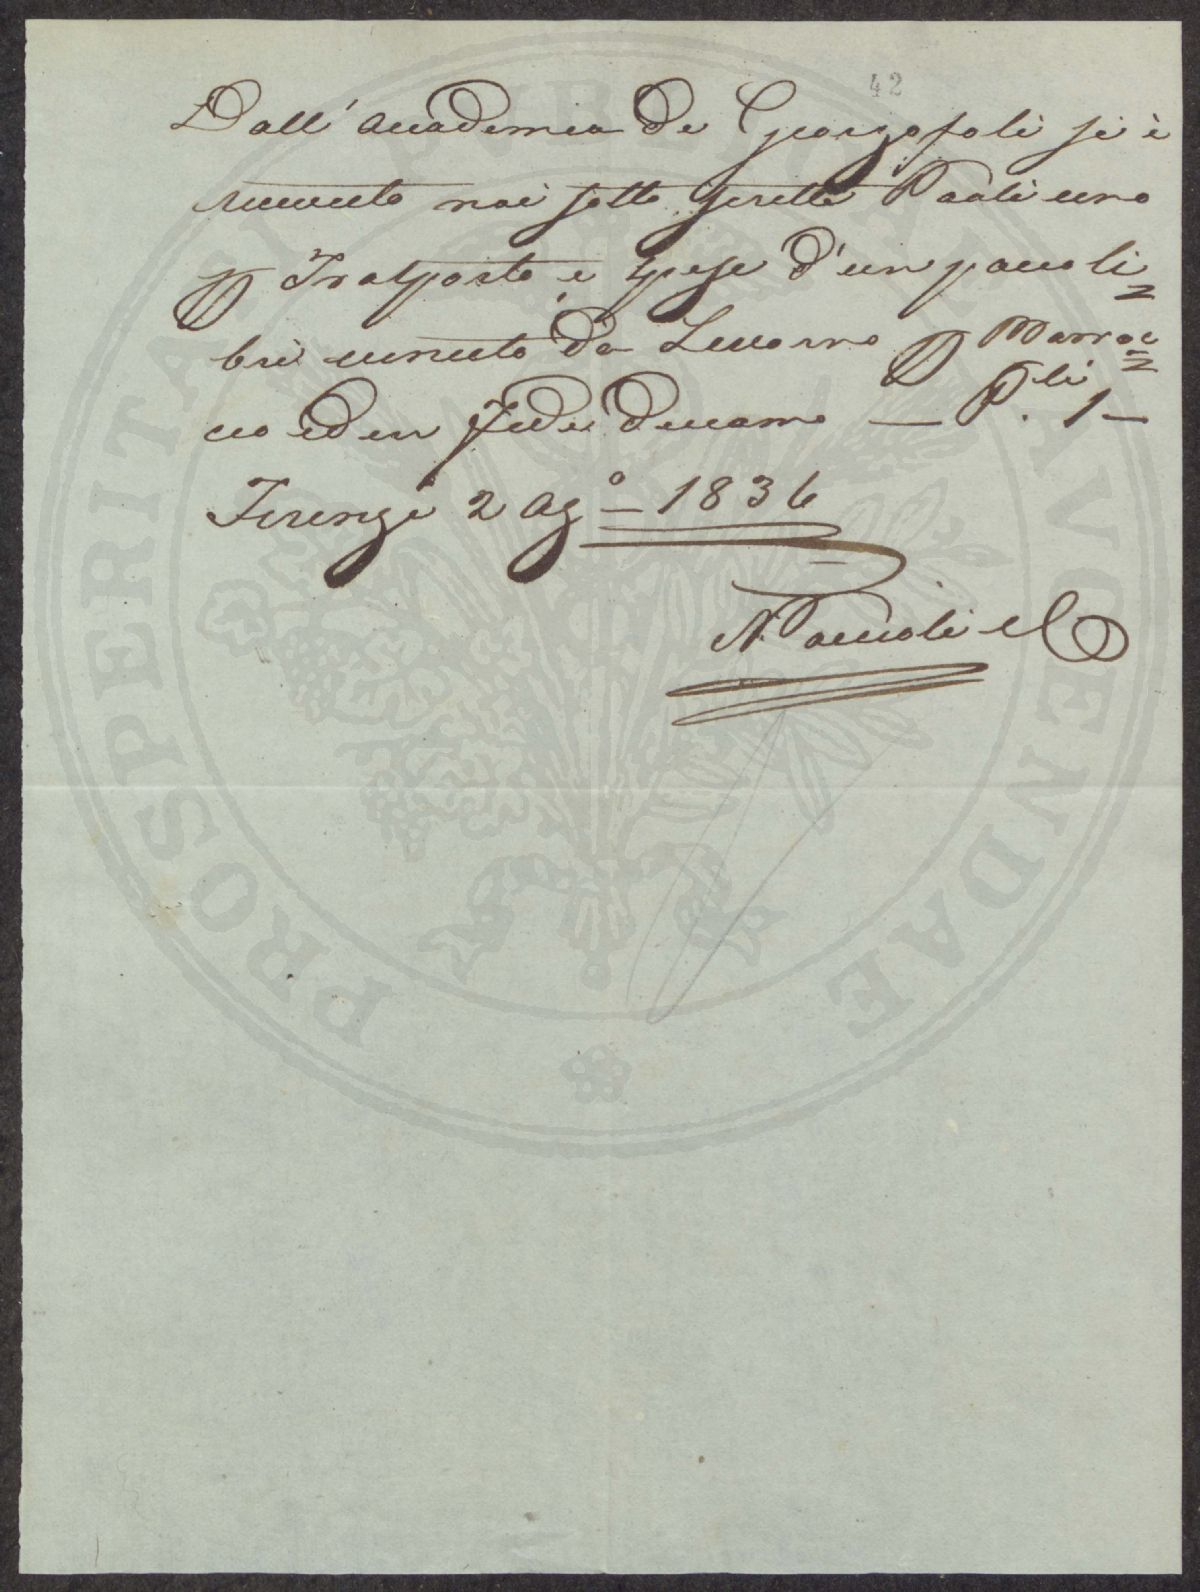 42
Dall' Accademia de Georgofoli si è
riceuuto noi sotto scritti Paoli uno
p Trasporto e spese d'un pacco li=
bri venuto da Livorno p Marroc=
co ed in fede diciamo — P.li 1 —
Firenze 2 Ag.o 1836
N. Paccioli
PROSPERITATI PUBLICAE AUGENDAE